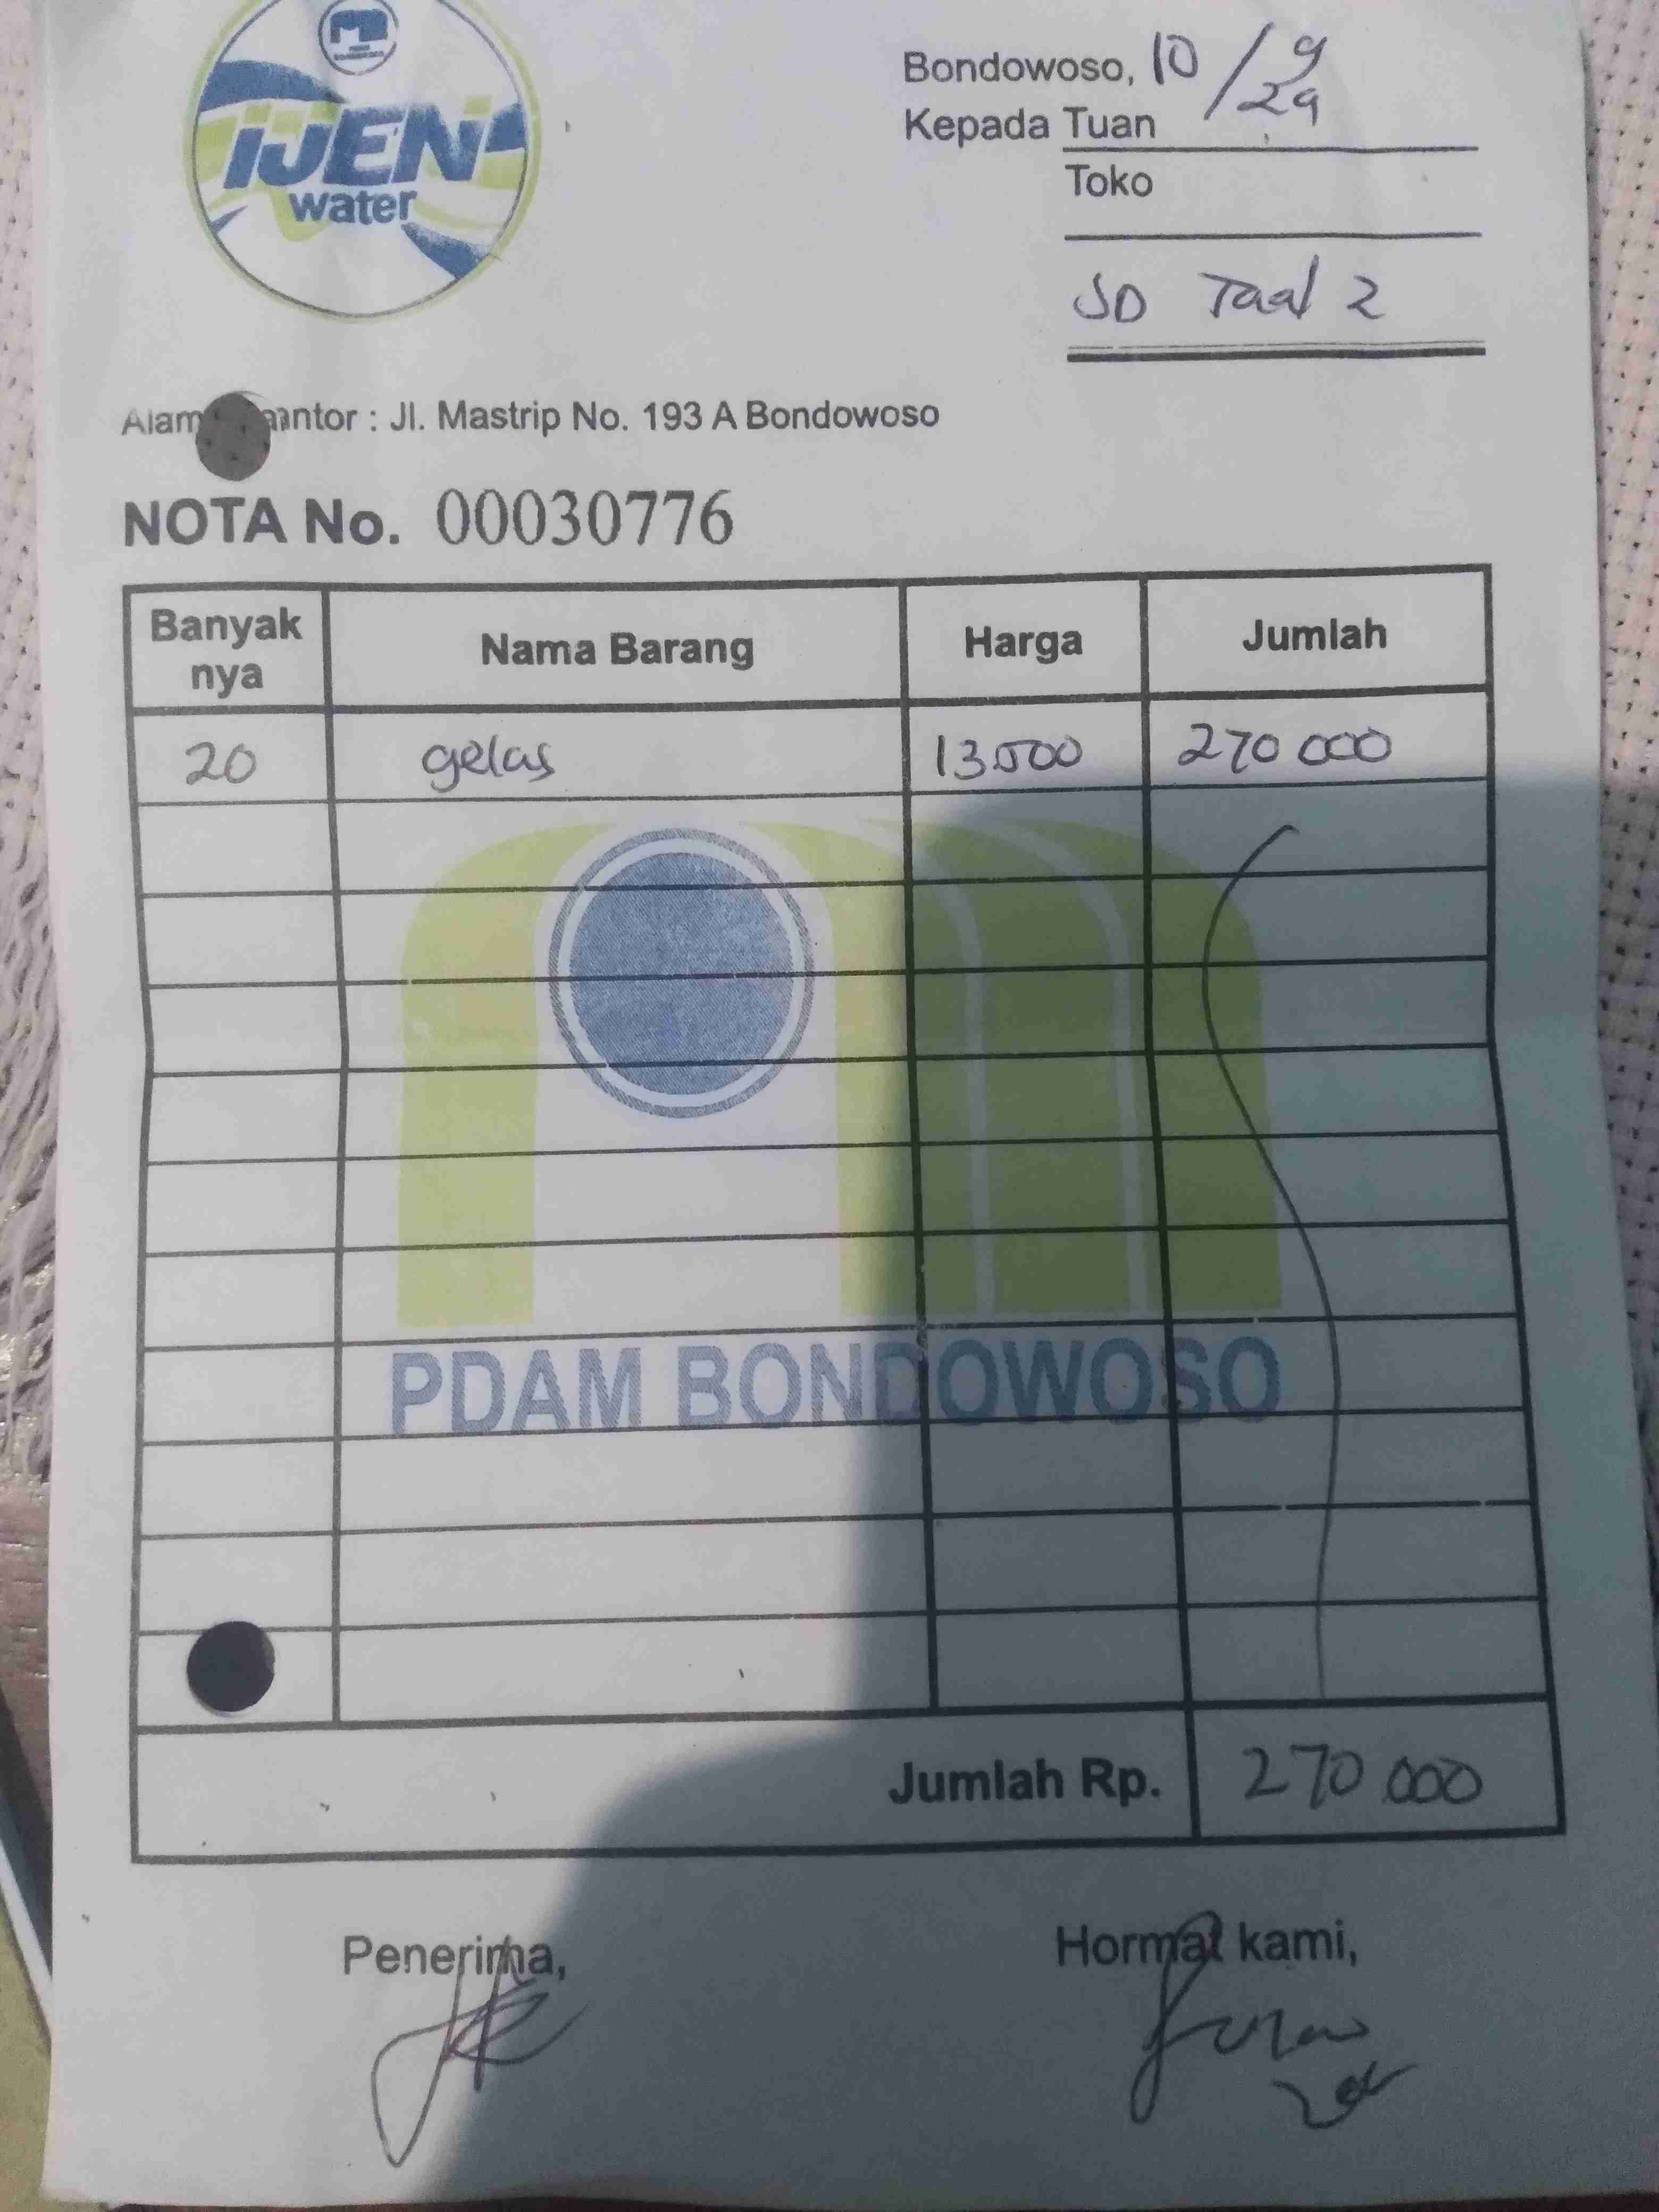 iJEN
water
Bondowoso, 10/9
24
Kepada Tuan
Toko
SD Taal 2
Alam antor : Jl. Mastrip No. 193 A Bondowoso
NOTA No. 00030776
Banyak nya Nama Barang Harga Jumlah
20 gelas 13.500 270 000
PDAM BONDOWOSO
Jumlah Rp. 270 000
Penerima, Hormat kami,